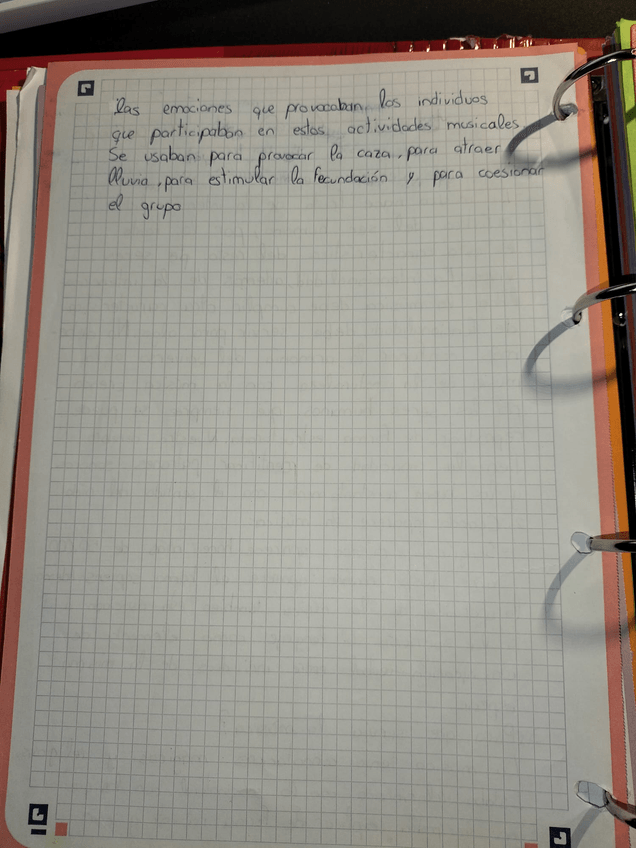 las emociones que provocaban los individuos
que participaban en estas actividades musicales
Se usaban para provocar la caza, para atraer
lluvia, para estimular la fecundación y para coesionar
el grupo